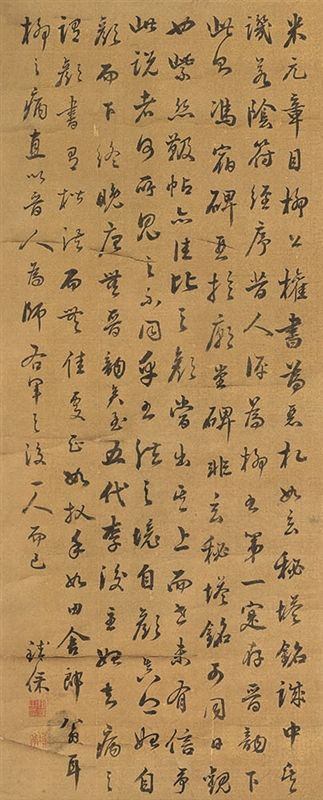 米元章目柳公權書為惡札如玄秘塔銘誠中其
譏若陰符經序昔人評為柳書第一寔存晉韻下
此則馮宿碑亞於廟堂碑非玄秘塔銘可同日觀
也紫絲靸帖亦佳比之顏當出其上而世未有信予
此說者何所見之不同乎書法之壞自顏真卿始自
顏而下終晚唐無晉韻矣至五代李後主始知病之
謂顏書有楷法而無佳處正如叉手如田舍郎翁耳
柳之病直以晉人為師右軍之後一人而已
鐵保